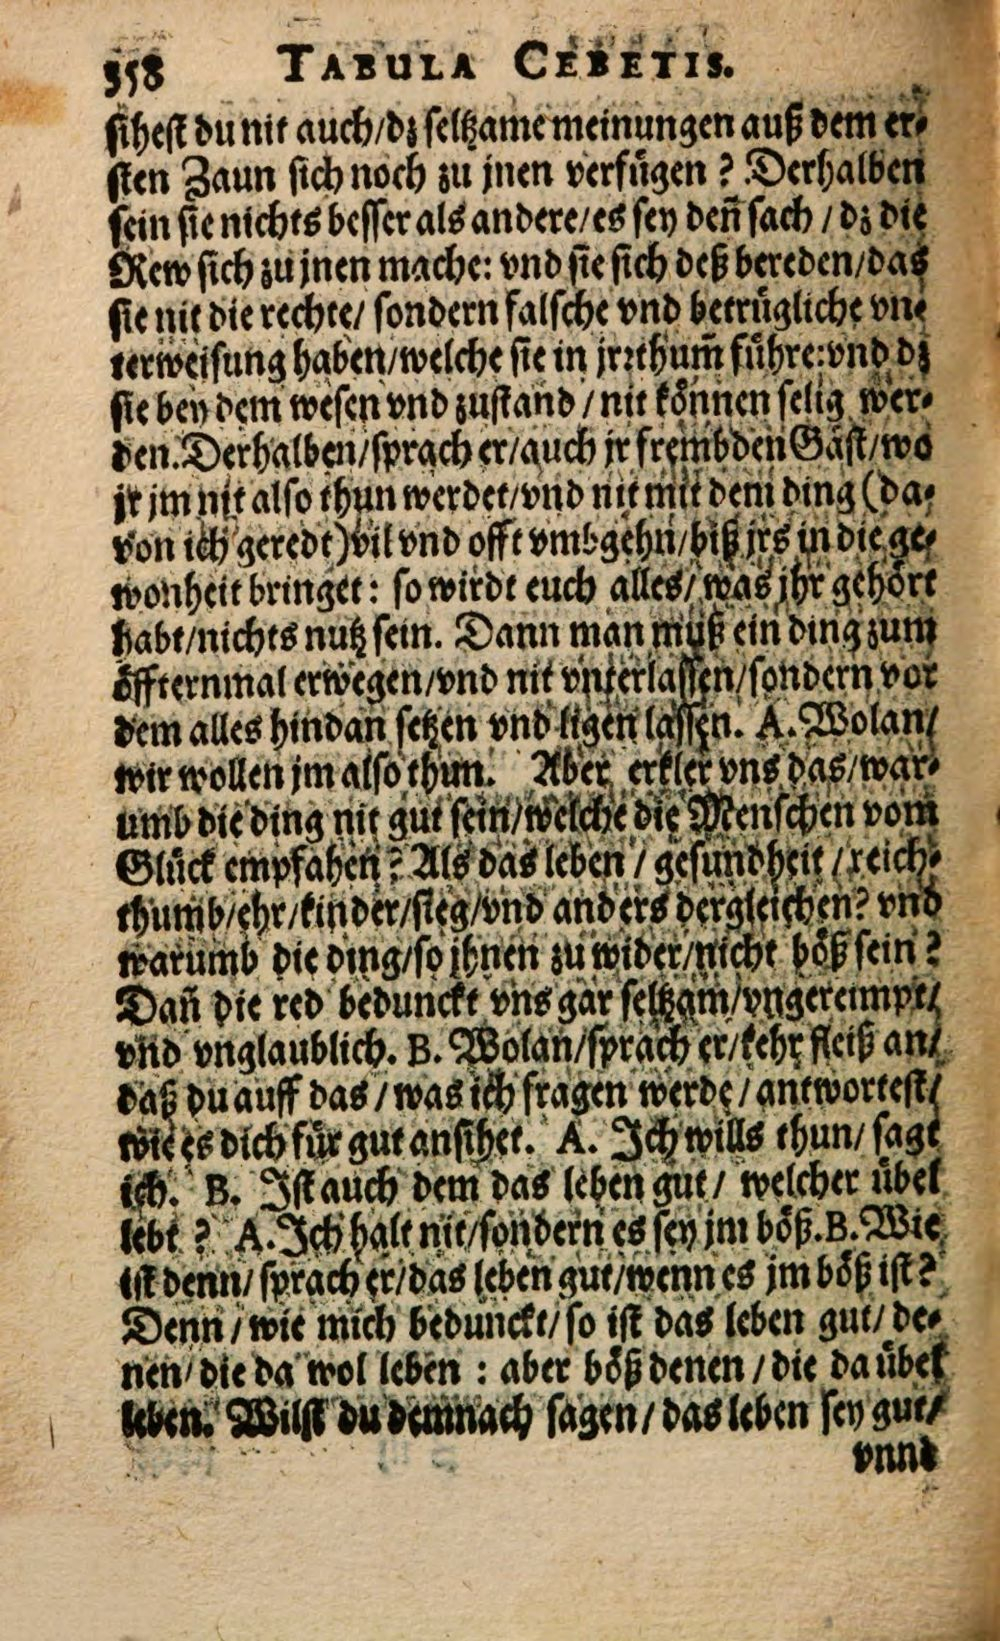 358 TABULA CEBETIS.
sihest du nit auch/dz seltzame meinungen auß dem er-
sten Zaun sich noch zu jnen verfügen? Derhalben
sein sie nichts besser als andere/es sey deñ sach/dz die
Rew sich zu jnen mache: vnd sie sich deß bereden/das
sie nit die rechte/ sondern falsche vnd betrügliche vn-
terweisung haben/welche sie in jrrthum̃ führe: vnd dz
sie bey dem wesen vnd zustand/nit können selig wer-
den. Derhalben/sprach er/auch jr frembden Gäst/wo
jr jm nit also thun werdet/vnd nit mit dem ding (da-
von ich geredt) vil vnd offt vmbgehn/biß jrs in die ge-
wonheit bringet: so wirdt euch alles/was jhr gehört
habt/nichts nutz sein. Dann man muß ein ding zum
öffternmal erwegen/vnd nit vnterlassen/sondern vor
dem alles hindan setzen vnd ligen lassen. A. Wolan/
wir wollen jm also thun. Aber erkler vns das/war-
umb die ding nit gut sein/welche die Menschen vom
Glück empfahen? Als das leben/gesundheit/reich-
thumb/ehr/kinder/sieg/vnd anders dergleichen? vnd
warumb die ding/so ihnen zu wider/nicht böß sein?
Dañ die red bedunckt vns gar seltzam/vngereimpt/
vnd vnglaublich. B. Wolan/sprach er/kehr fleiß an/
daß du auff das/was ich fragen werde/antwortest/
wie es dich für gut ansihet. A. Ich wills thun/ sagt
ich. B. Ist auch dem das leben gut/ welcher übel
lebt? A. Ich halt nit/sondern es sey jm böß. B. Wie
ist denn/sprach er/das leben gut/wenn es jm böß ist?
Denn/wie mich bedunckt/so ist das leben gut/de-
nen/die da wol leben: aber böß denen/die da übel
leben. Wilst du demnach sagen/das leben sey gut/
vnnd